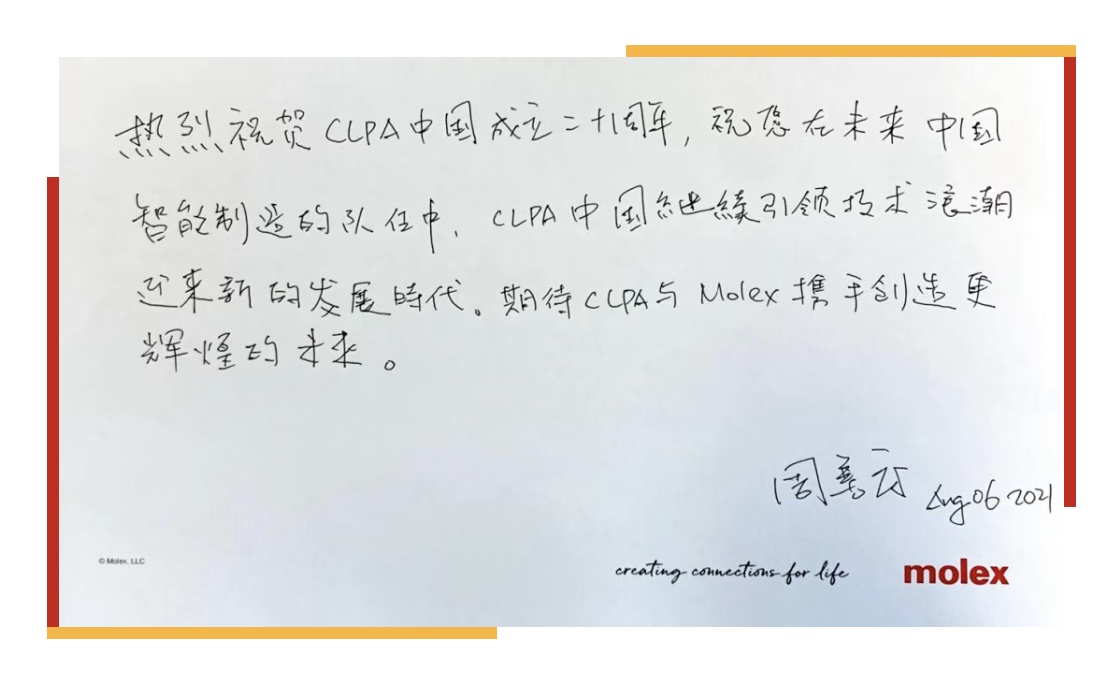 热烈祝贺CLPA中国成立二十周年,祝愿在未来中国
智能制造的队伍中,CLPA中国継續引领技术浪潮
迎来新的发展時代。期待CLPA与Molex携手创造更
辉煌的未来。
周 云 Aug 06 2021
© Molex, LLC
creating connections for life
molex